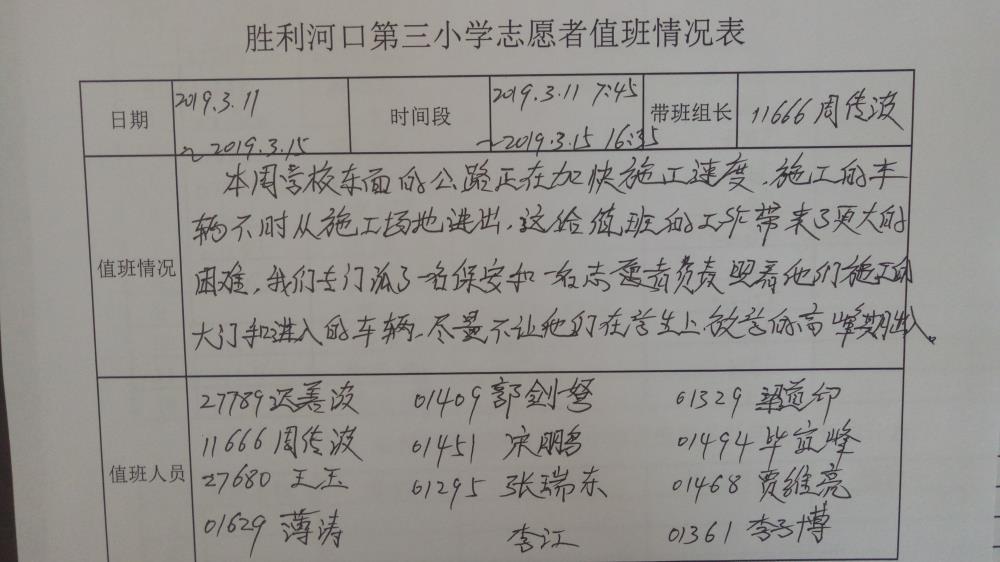 胜利河口第三小学志愿者值班情况表
日期 2019.3.11 ~ 2019.3.15 时间段 2019.3.11 7:45 ~2019.3.15 16:35 带班组长 11666 周传波
值班情况
本周学校东面的公路正在加快施工速度,施工的车
辆不时从施工场地进出,这给值班的工作带来了更大的
困难,我们专门派了一名保安和一名志愿者负责照看他们施工的
大门和进入的车辆,尽量不让他们在学生上放学的高峰期出入。
值班人员
27789 迟善波 01409 郭剑弩 01329 道印
11666 周传波 01451 宋鹏 01494 毕立峰
27680 王玉 01295 张瑞东 01468 贾维亮
01629 薄涛 李江 01361 李子博